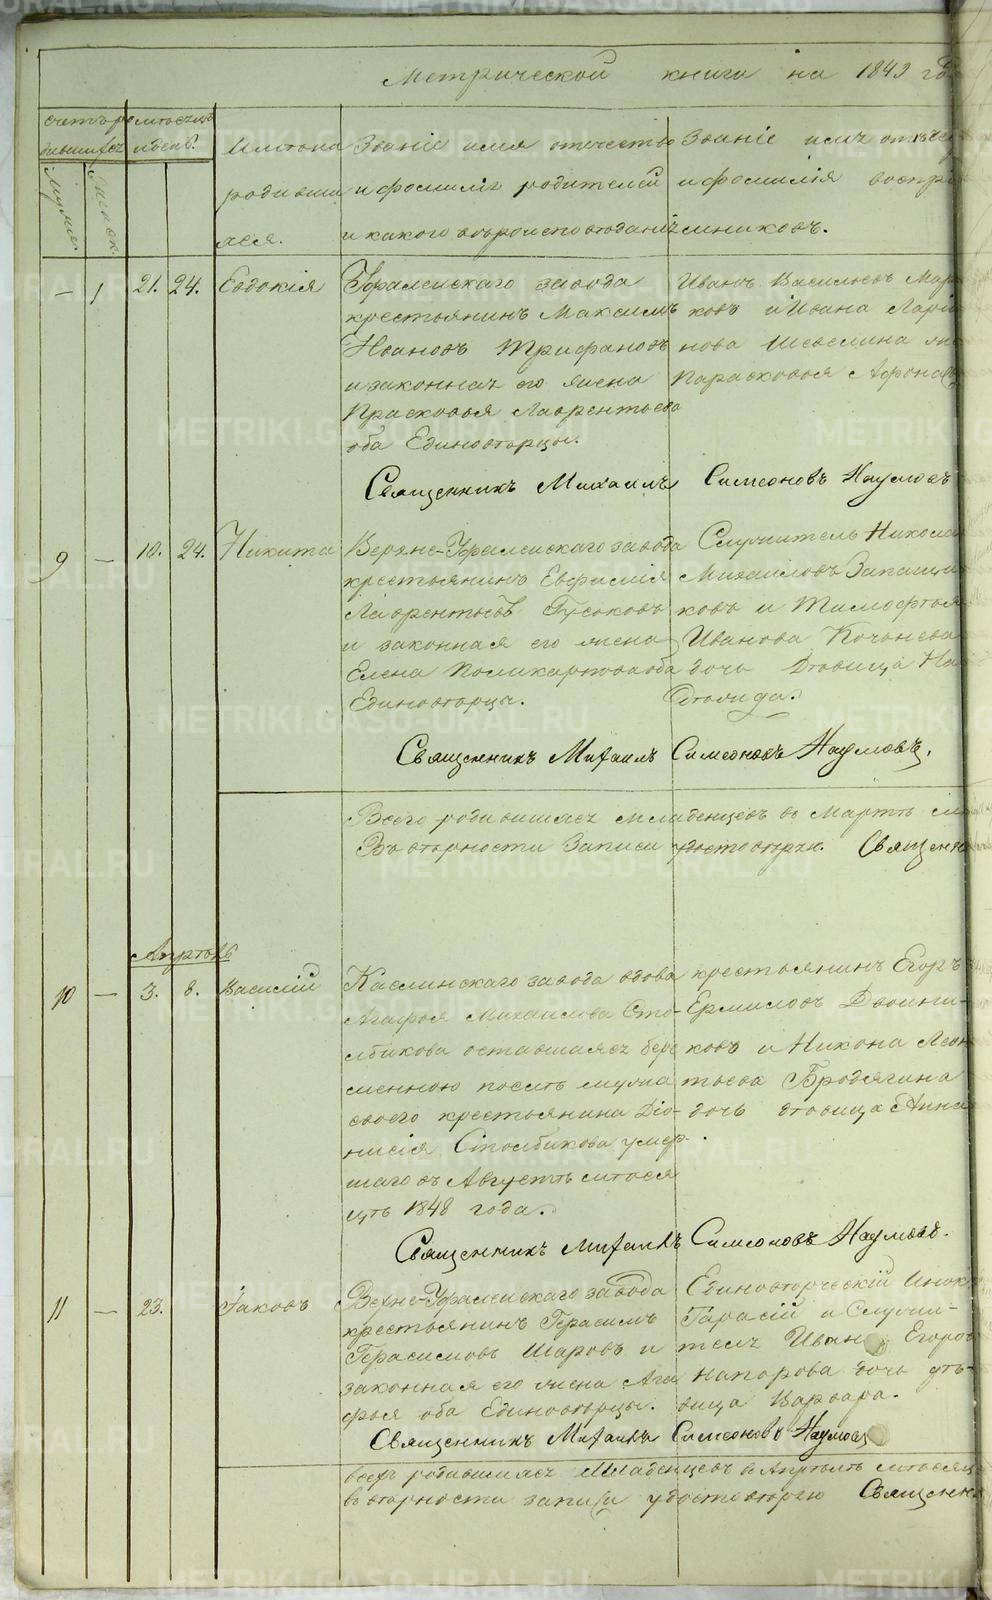 Метрической книги на 1849 го
Счетъ родившихся
Месяцъ и день.
Мужес.
Женск.
Имяна родившихся.
Званіе имя отечество и фомилія родителей и какого вѣроисповѣданія
Званіе имя отечес и фомилія воспріемниковъ.
— 1 21. 24. Евдокія
Уфалейскаго завода
крестьянинъ Максимъ
Ивановъ Трифановъ
и законная его жена
Прасковья Лаврентьева
оба Единовѣрцы.
Иванъ Васильевъ Мар
ковъ и Ивана Ларіо
нова Шевелина же
Парасковья Афонас
Священникъ Михаилъ Симеоновъ Наумовъ
9 — 10. 24. Никита
Верхне-Уфалейскаго завода
крестьянинъ Евфимій
Лаврентьевъ Гусковъ
и законная его жена
Елена Поликарпова оба
Единовѣрцы.
Служитель Никола
Михайловъ Запащи
ковъ и Тимофѣя
Иванова Кочьнева
дочь Дѣвица На
Священникъ Михаилъ Симеоновъ Наумовъ.
Всего родившихся младенцевъ въ Мартѣ
Въ верности записи удостоверяю. Священ
Апрѣль
10 — 3. 8. Василій
Каслинскаго завода вдова
Агафья Михайлова Сто-
лбикова оставшаяся бере
менною послѣ мужа
своего крестьянина Діо-
нисія Столбикова умер-
шаго въ Августѣ меся
цѣ 1848 года.
крестьянинъ Егоръ
Ермиловъ Двойни-
ковъ и Никона Леон
тьева Бродягина
дочь дѣвица Анна
Священникъ Михаилъ Симеоновъ Наумовъ.
11 — 23. Іаковъ
Верхне-Уфалейскаго завода
крестьянинъ Герасимъ
Герасимовъ Шаровъ и
законная его жена Ага
фья оба Единовѣрцы.
Единовѣрческій Инок
Тарасій и Служи-
тель Иван Егоров
Напорова дочь дѣ-
вица Варвара.
Священникъ Михаилъ Симеоновъ Наумов
всехъ родившихся Младенцевъ въ Апрѣлѣ месяц
въ верности записи удостоверяю Священн
METRIKI.GASO-URAL.RU